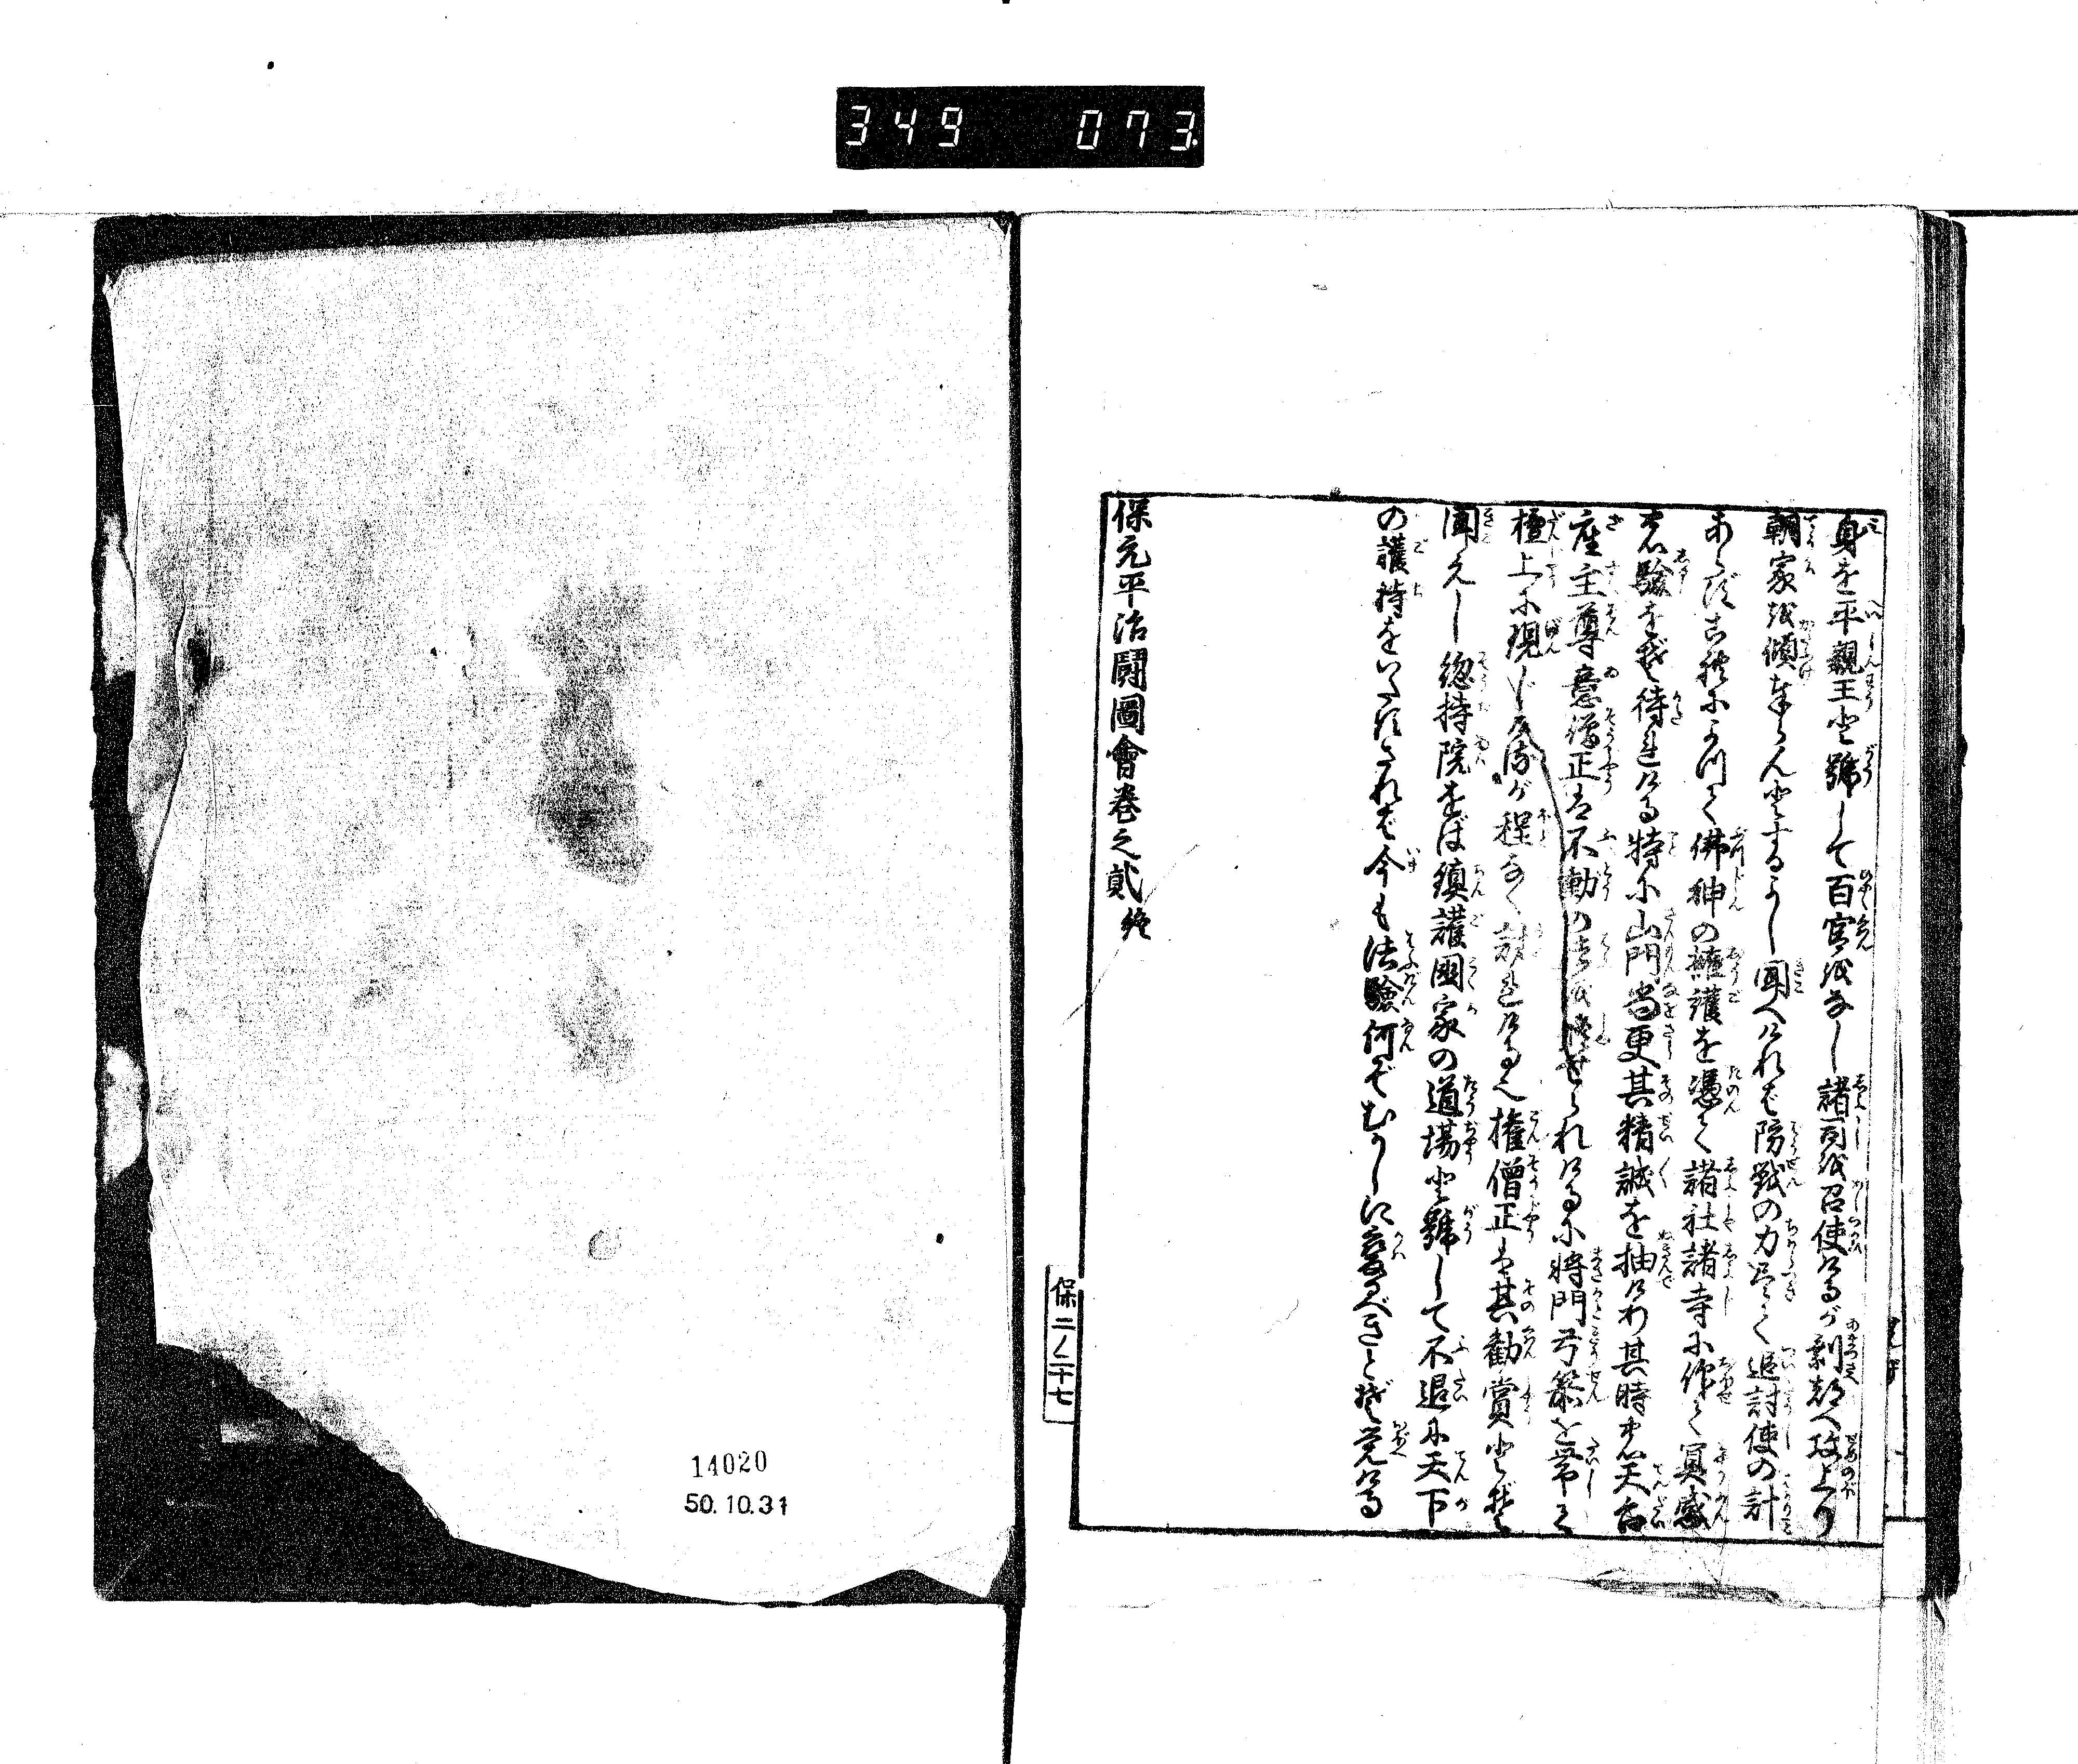 349 073.
身を平親王と號して百官をなし諸司を召使けるが剰都へ攻上り
朝家を傾奉らんとするよし聞へければ防戦の力尽く追討使の計
あらず古老にかつて佛神の擁護を憑て諸社諸寺に仰て冥感
の驗をぞ待れける特に山門尚更其精誠を抽けり其時の天台
座主尊意僧正は不動の法を修せられけるに将門弓箭を帯て
壇上に現じ又流が程なく討れけるへ権僧正は其勧賞とぞ
聞えし総持院をば鎮護国家の道場と號して不退に天下
の護持をいたすされば今も法驗何ぞむかしに変るべきとぞ覚ける
保元平治闘圖會巻之貳終
保二ノ二十七
14020
50.10.31